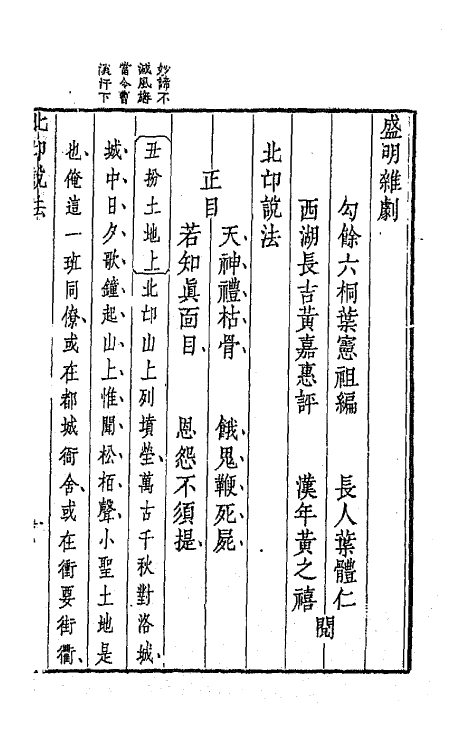 盛明雜劇
勾餘六桐葉憲祖編 長人葉體仁
西湖長吉黃嘉惠評 漢年黃之禧
閱
北邙說法
正目
天神禮枯骨 餓鬼鞭死屍
若知眞面目 恩怨不須提
丑扮土地上北邙山上列墳塋萬古千秋對洛城
城中日夕歌鐘起山上惟聞松栢聲小聖土地是
也俺這一班同僚或在都城衙舍或在衝要街衢
妙諦不
減風旛
當令曹
溪汗下
北邙說法